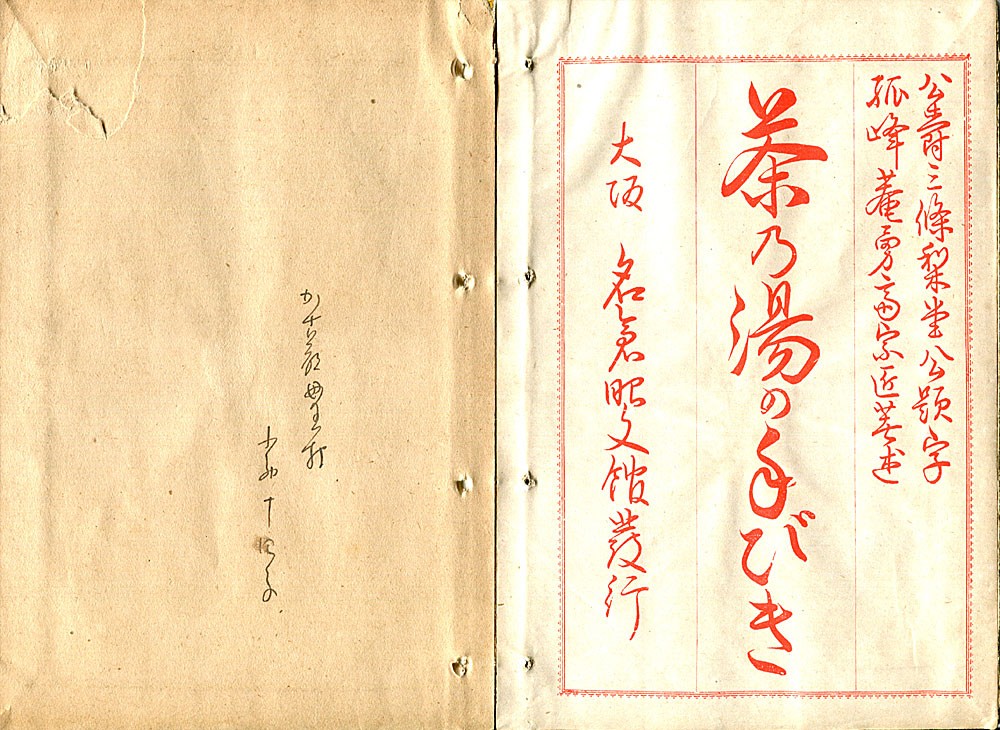 公爵三條梨堂公題字
孤峰菴勇斎宗匠著述
茶乃湯の手びき
大阪 名倉昭文館發行